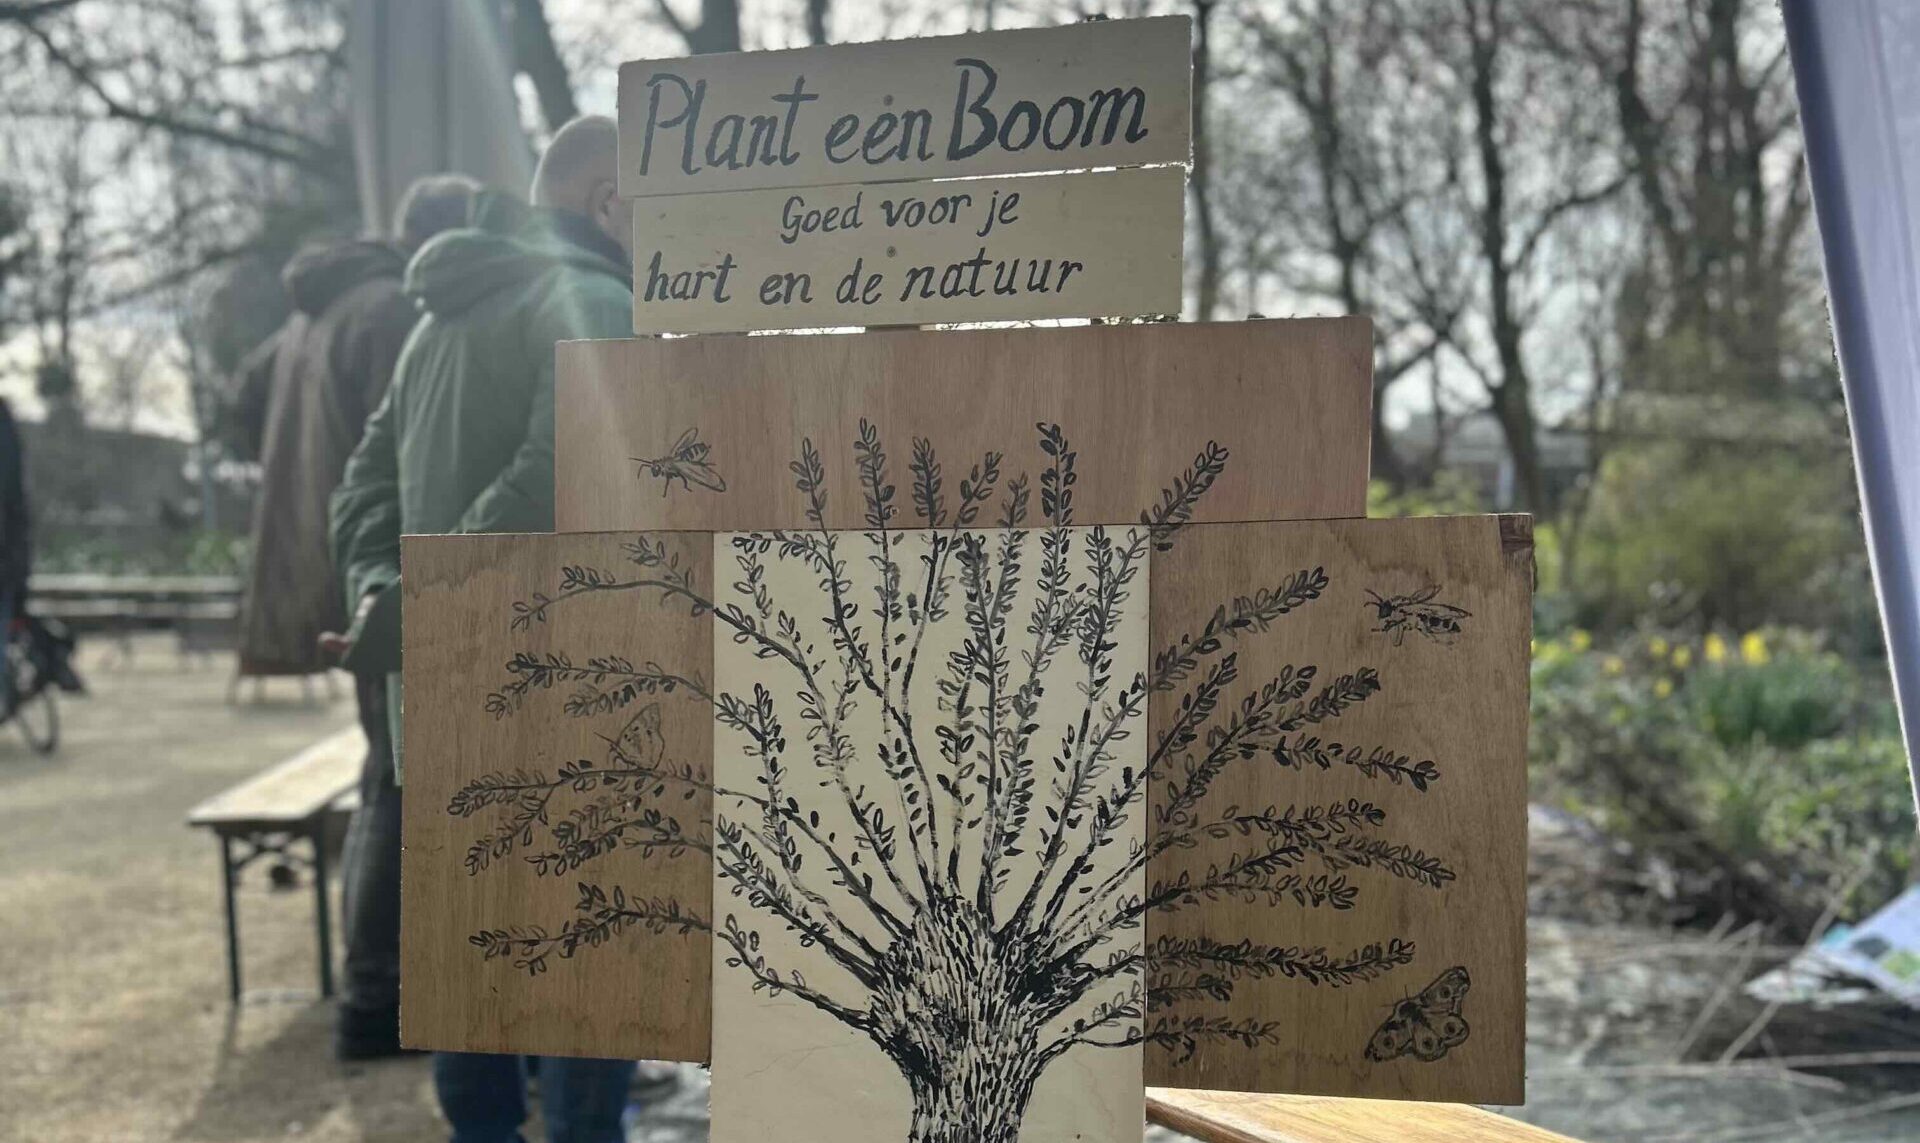 Plant eén Boom
Goed voor je
hart en de natuur